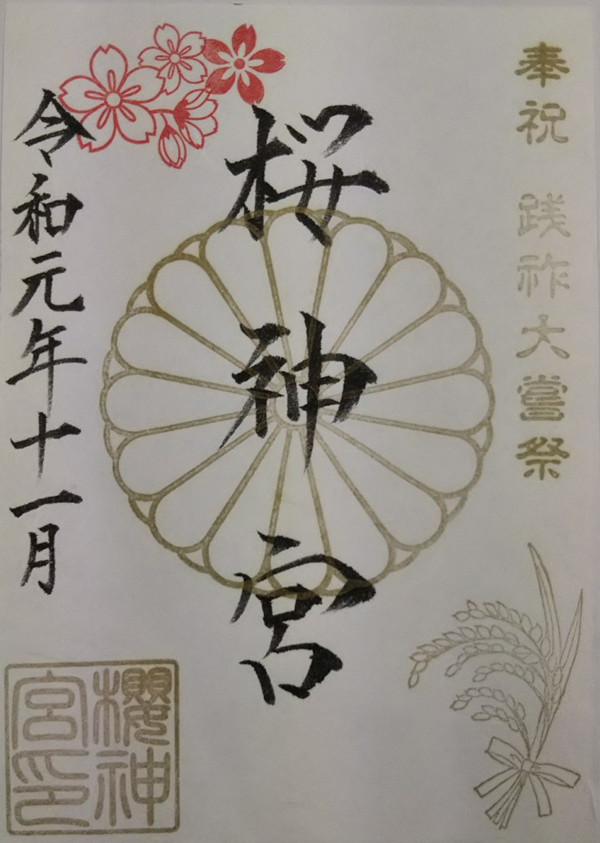 奉祝 践祚大嘗祭
桜神宮
令和元年十一月
櫻神
宮印